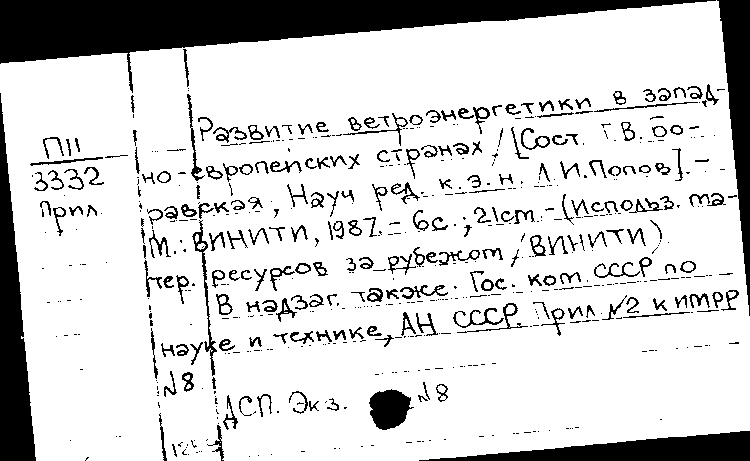 П11
3332
Прил.
Развитие ветроэнергетики в запад-
но-европейских странах / [Сост. Г.В. Бо-
равская, Науч ред. к.э.н. Л.И.Попов]. –
М.: ВИНИТИ, 1987. – 6с.; 21см. – (Использ. ма-
тер. ресурсов за рубежом / ВИНИТИ)
В надзаг. также: Гос. ком. СССР по
науке и технике, АН СССР. Прил №2 к ИМРР
№8
ДСП. Экз. №8